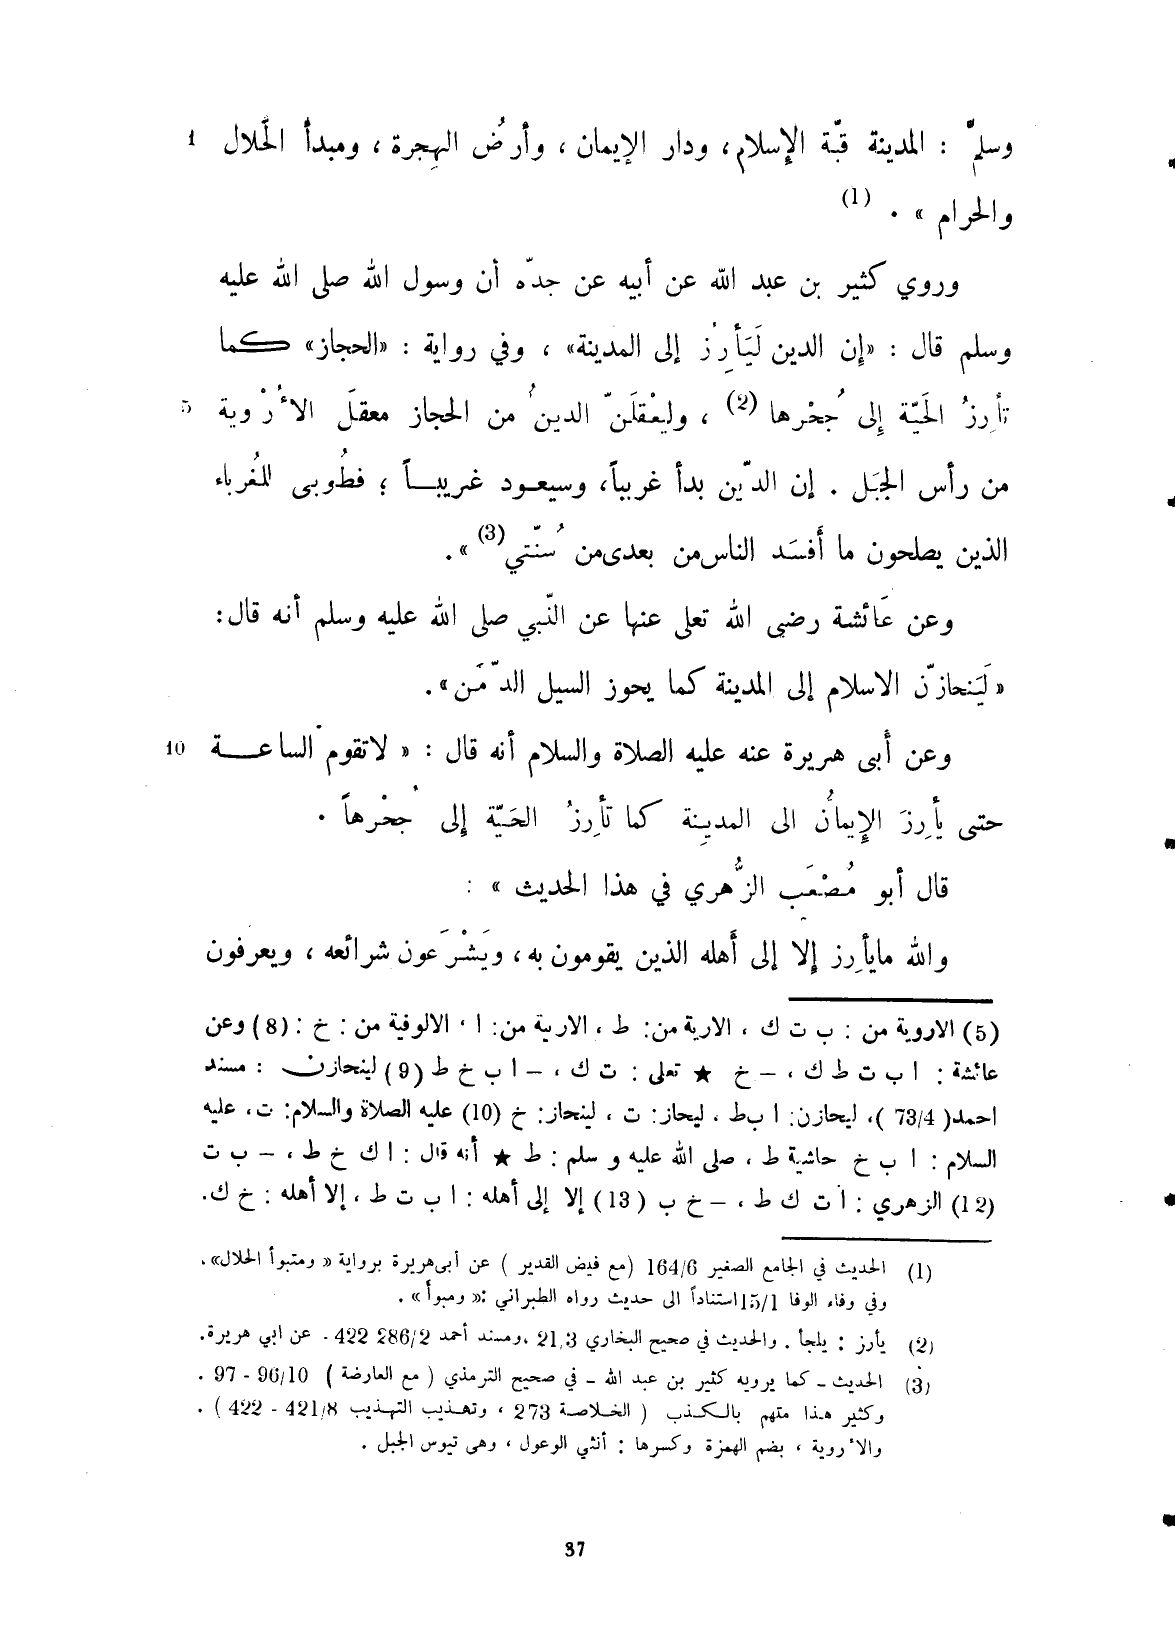 وسلمّ : المدينة قبّة الإسلام، ودار الإيمان ، وأرضُ الهِجرة ، ومبدأ الحَلال 1
والحرام » . (1)
وروي كثير بن عبد اللّه عن أبيه عن جدّه أن وسول الله صلى الله عليه
وسلم قال : «إن الدين لَيَأرِزُ إلى المدينة» ، وفي رواية : «الحجاز» كما
تأرِزُ الحَيّة إلى جُحْرها (2) ، وليعْقلَنّ الدينُ من الحجاز معقلَ الأُرْوية 5
من رأس الجبَل . إن الدّين بدأ غريباً، وسيعود غريباً ؛ فطُوبى للغُرباء
الذين يصلحون ما أَفسَد الناس من بعدى من سُنّتي(3) ».
وعن عَائشة رضى الله تعلى عنها عن النّبي صلى الله عليه وسلم أنه قال:
«لَيَنحازنّ الاسلام إلى المدينة كما يحوز السيل الدّمَن».
وعن أبى هريرة عنه عليه الصلاة والسلام أنه قال : « لاتقوم الساعة 10
حتى يأرِزَ الإيمانُ الى المدينة كما تأرِزُ الحَيّة إلى جُحْرهاً .
قال أبو مُصْعَب الزُّهري في هذا الحديث » :
والله مايأرِز إلا إلى أَهله الذين يقومون به، ويَشْرَعون شرائعه ، ويعرفون
(5) الاروية من : ب ت ك ، الارية من: ط ، الاربة من: ا ، الالوفية من : خ : (8) وعن
عائشة : ا ب ت ط ك ، – خ ★ تعلى : ت ك ، – ا ب خ ط (9) لينحازن : مسند
احمد( 73/4 )، ليحازن: ا ب ط ، ليحاز: ت ، لينحاز: خ (10) عليه الصلاة والسلام: ت، عليه
السلام : ا ب خ حاشية ط ، صلى الله عليه و سلم : ط ★ أنه قال : ا ك خ ط ، – ب ت
(12) الزهري : ا ت ك ط ، – خ ب (13) إلا إلى أهله : ا ب ت ط ، إلا أهله : خ ك.
(1) الحديث في الجامع الصغير 164/6 (مع فيض القدير ) عن أبى هريرة برواية « ومتبوأ الحلال».
وفي وفاء الوفا 15/1 استناداً الى حديث رواه الطبراني :« ومبوأ» .
(2) يأرز : يلجأ . والحديث في صحيح البخاري 21,3 ،ومسند أحمد 286/2 422 . عن ابي هريرة.
(3) الحديث ـ كما يرويه كثير بن عبد الله ـ في صحيح الترمذي ( مع العارضة ) 96/10 - 97 .
وكثير هذا متهم بالكذب ( الخلاصة 273 ، وتهذيب التهذيب 421/8 - 422 ) .
والأروية ، بضم الهمزة وكسرها : أنثي الوعول ، وهى تيوس الجبل .
37